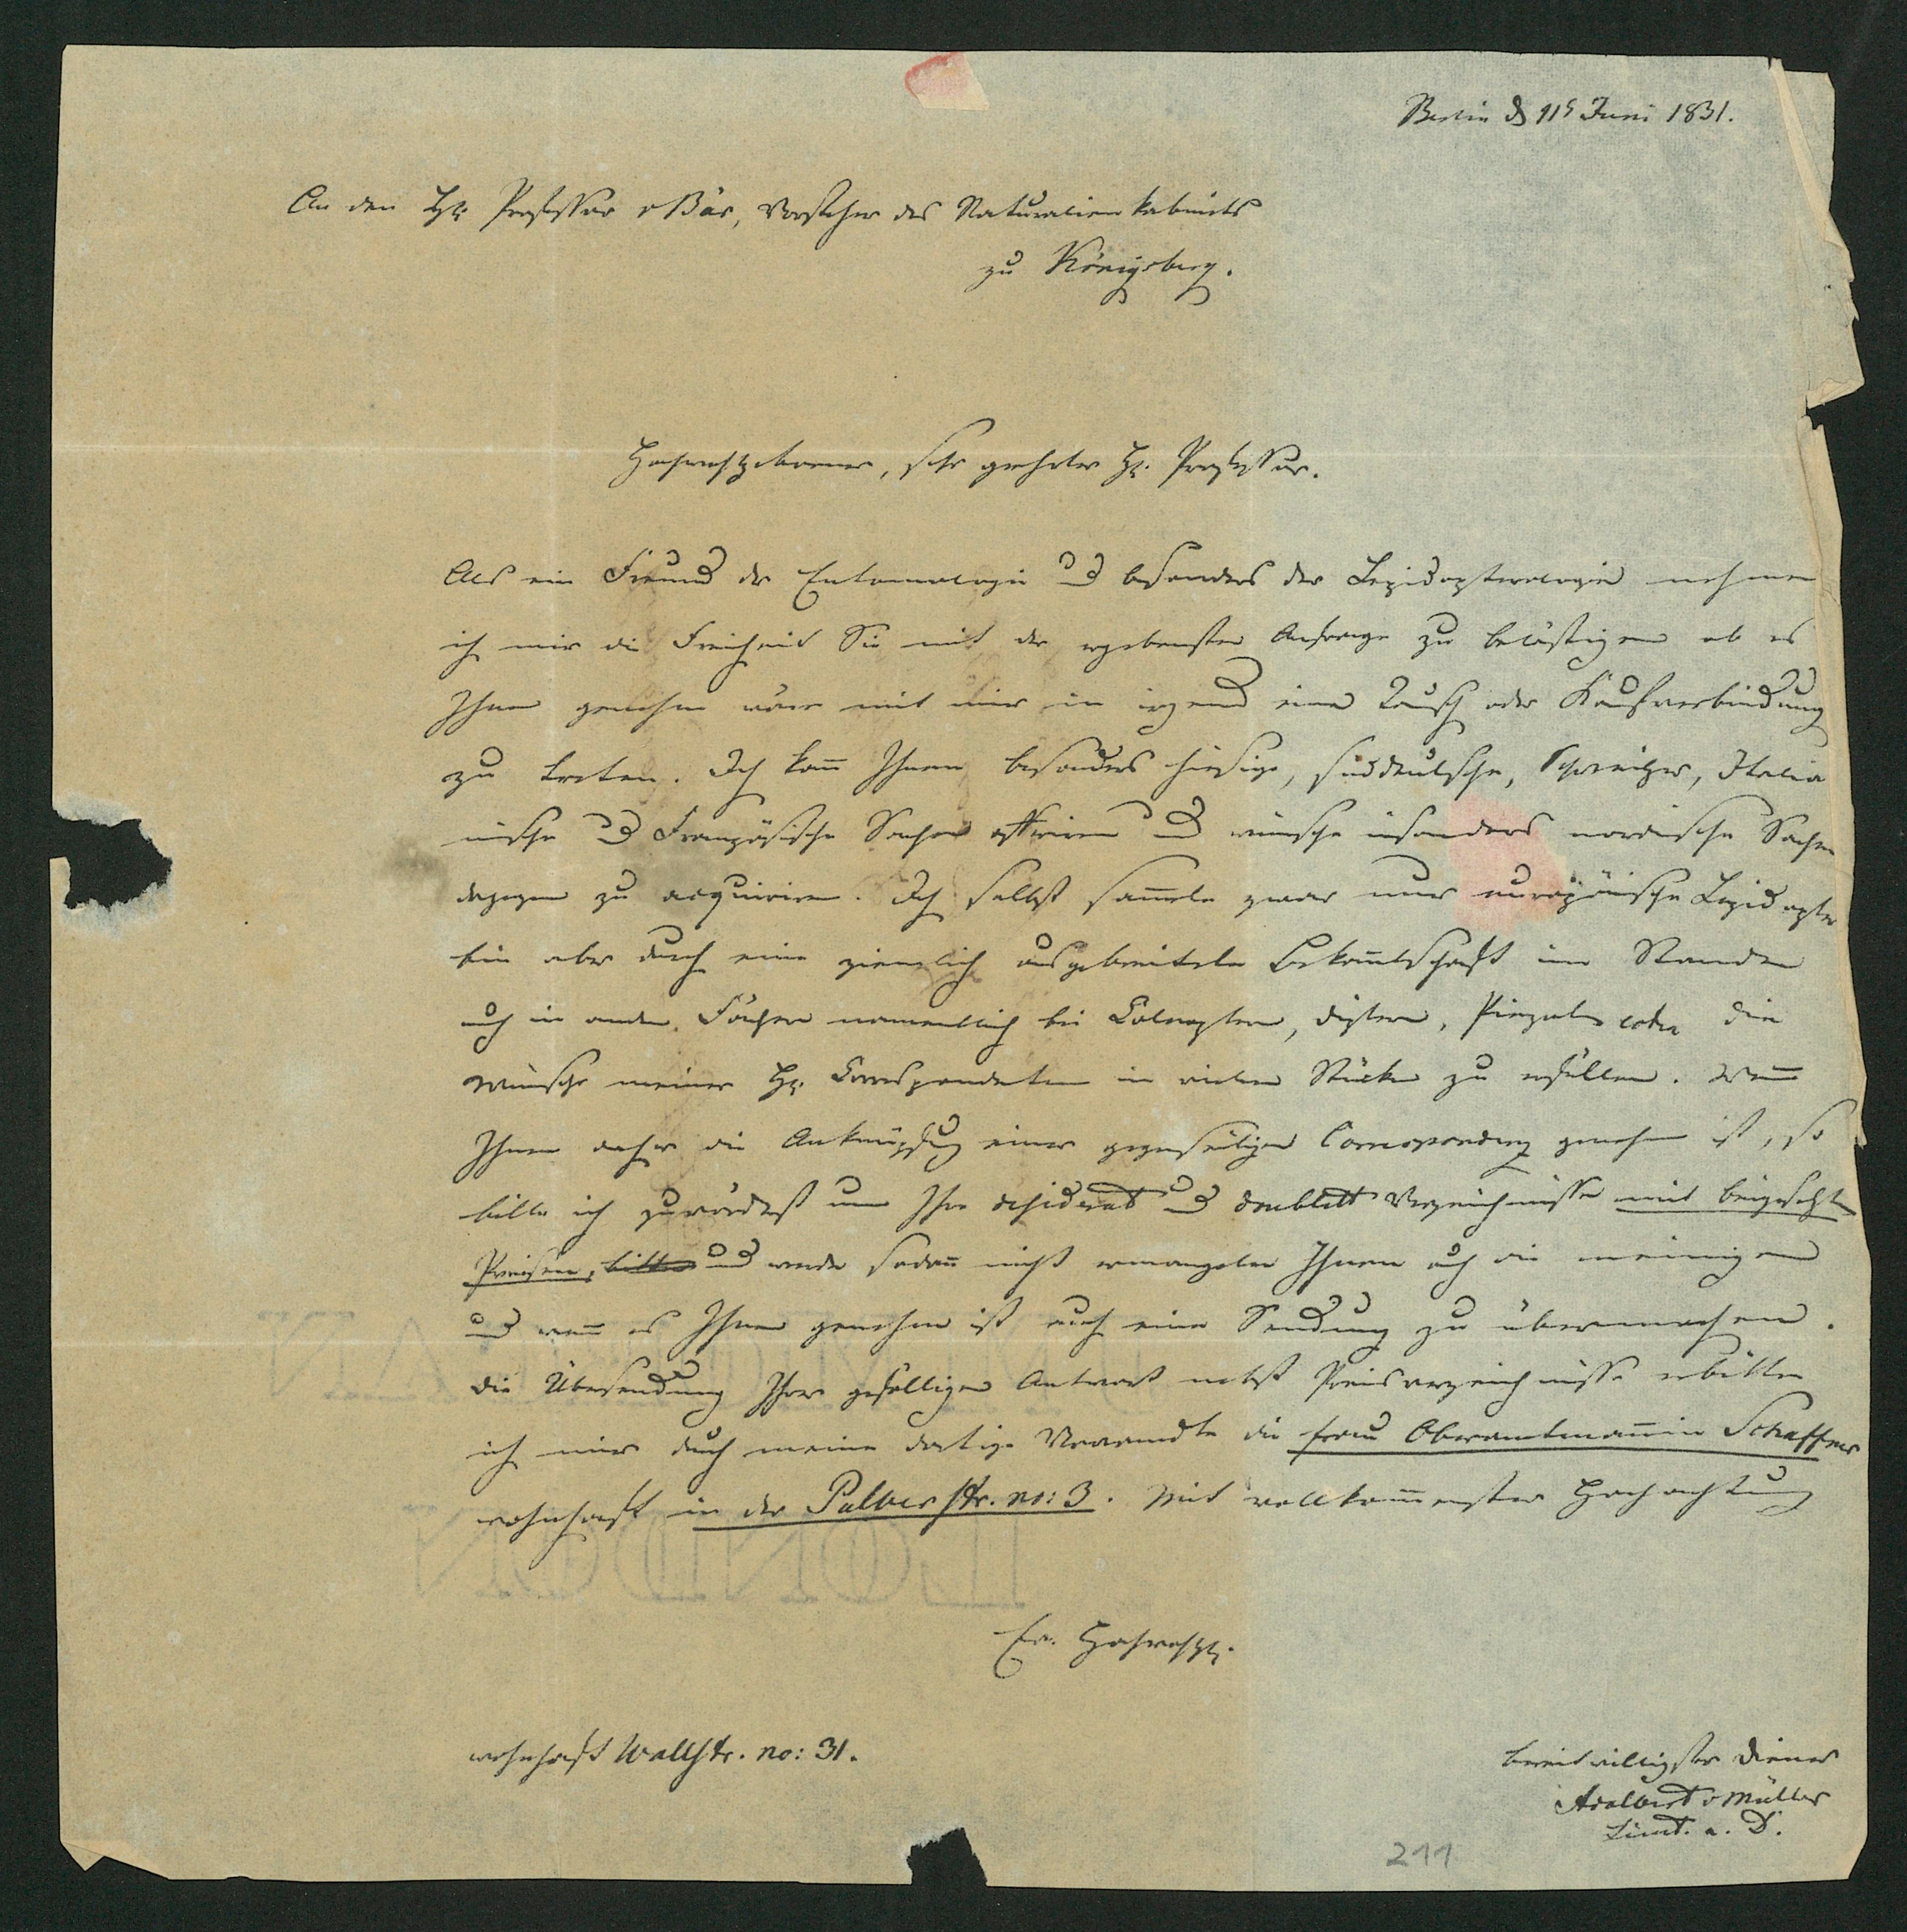 Berlin d 11t Juni 1831.
An den Hr. Professor v Bär, Vorsteher des Naturalienkabinets
zu Königsberg.
Hochwohlgeborener, sehr geehrter Hr. Professor.
Als ein Freund der Entomologie und besonders der Lepidopterologie nehme
ich mir die Freiheit Sie mit der ergebensten Anfrage zu belästigen ob es
Ihnen genehm wäre mit mir in irgend eine Tausch oder Kaufverbindung
zu treten. Ich kan̄ Ihnen besonders hiesige, süddeutsche, Schweitzer, Italia
nische und Französische Sachen offeriren und wünsche insonders nordische Sachen
dagegen zu acquiriren. Ich selbst sam̄le zwar nur europäische Lepidopter
bin aber durch eine ziemlich ausgebreitete Bekan̄tschaft im Stande
auch in andern Fächern namentlich bei Coleoptern, Diptern, Piezaten cetra die
Wünsche meiner Hr. Correspondenten in vielen Stücken zu erfüllen. Wen̄
Ihnen daher die Anknüpfung einer gegenseitigen Correspondenz genehm ist, so
bitte ich zuvörderst um Ihre desiderat und doublett Verzeichnisse mit beigesetzten
Preisen, bitten und werde sodan̄ nicht ermangeln Ihnen auch die meinigen
und wen̄ es Ihnen genehm ist auch eine Sendung zu übermachen.
Die Übersendung Ihrer gefälligen Antwort nebst Preisverzeichnisse erbitte
ich mir durch meine dortige Verwandte die Frau Oberamtman̄in Schaffner
wohnhaft in der Pulverstr. no: 3. Mit vollkom̄enster Hochachtung
Ew. Hochwohlg.
wohnhaft Wallstr. no: 31.
bereitwilligster Diener
Adalbert v Müller
Lieut. a. D.
211
J WHATMAN
LONDON